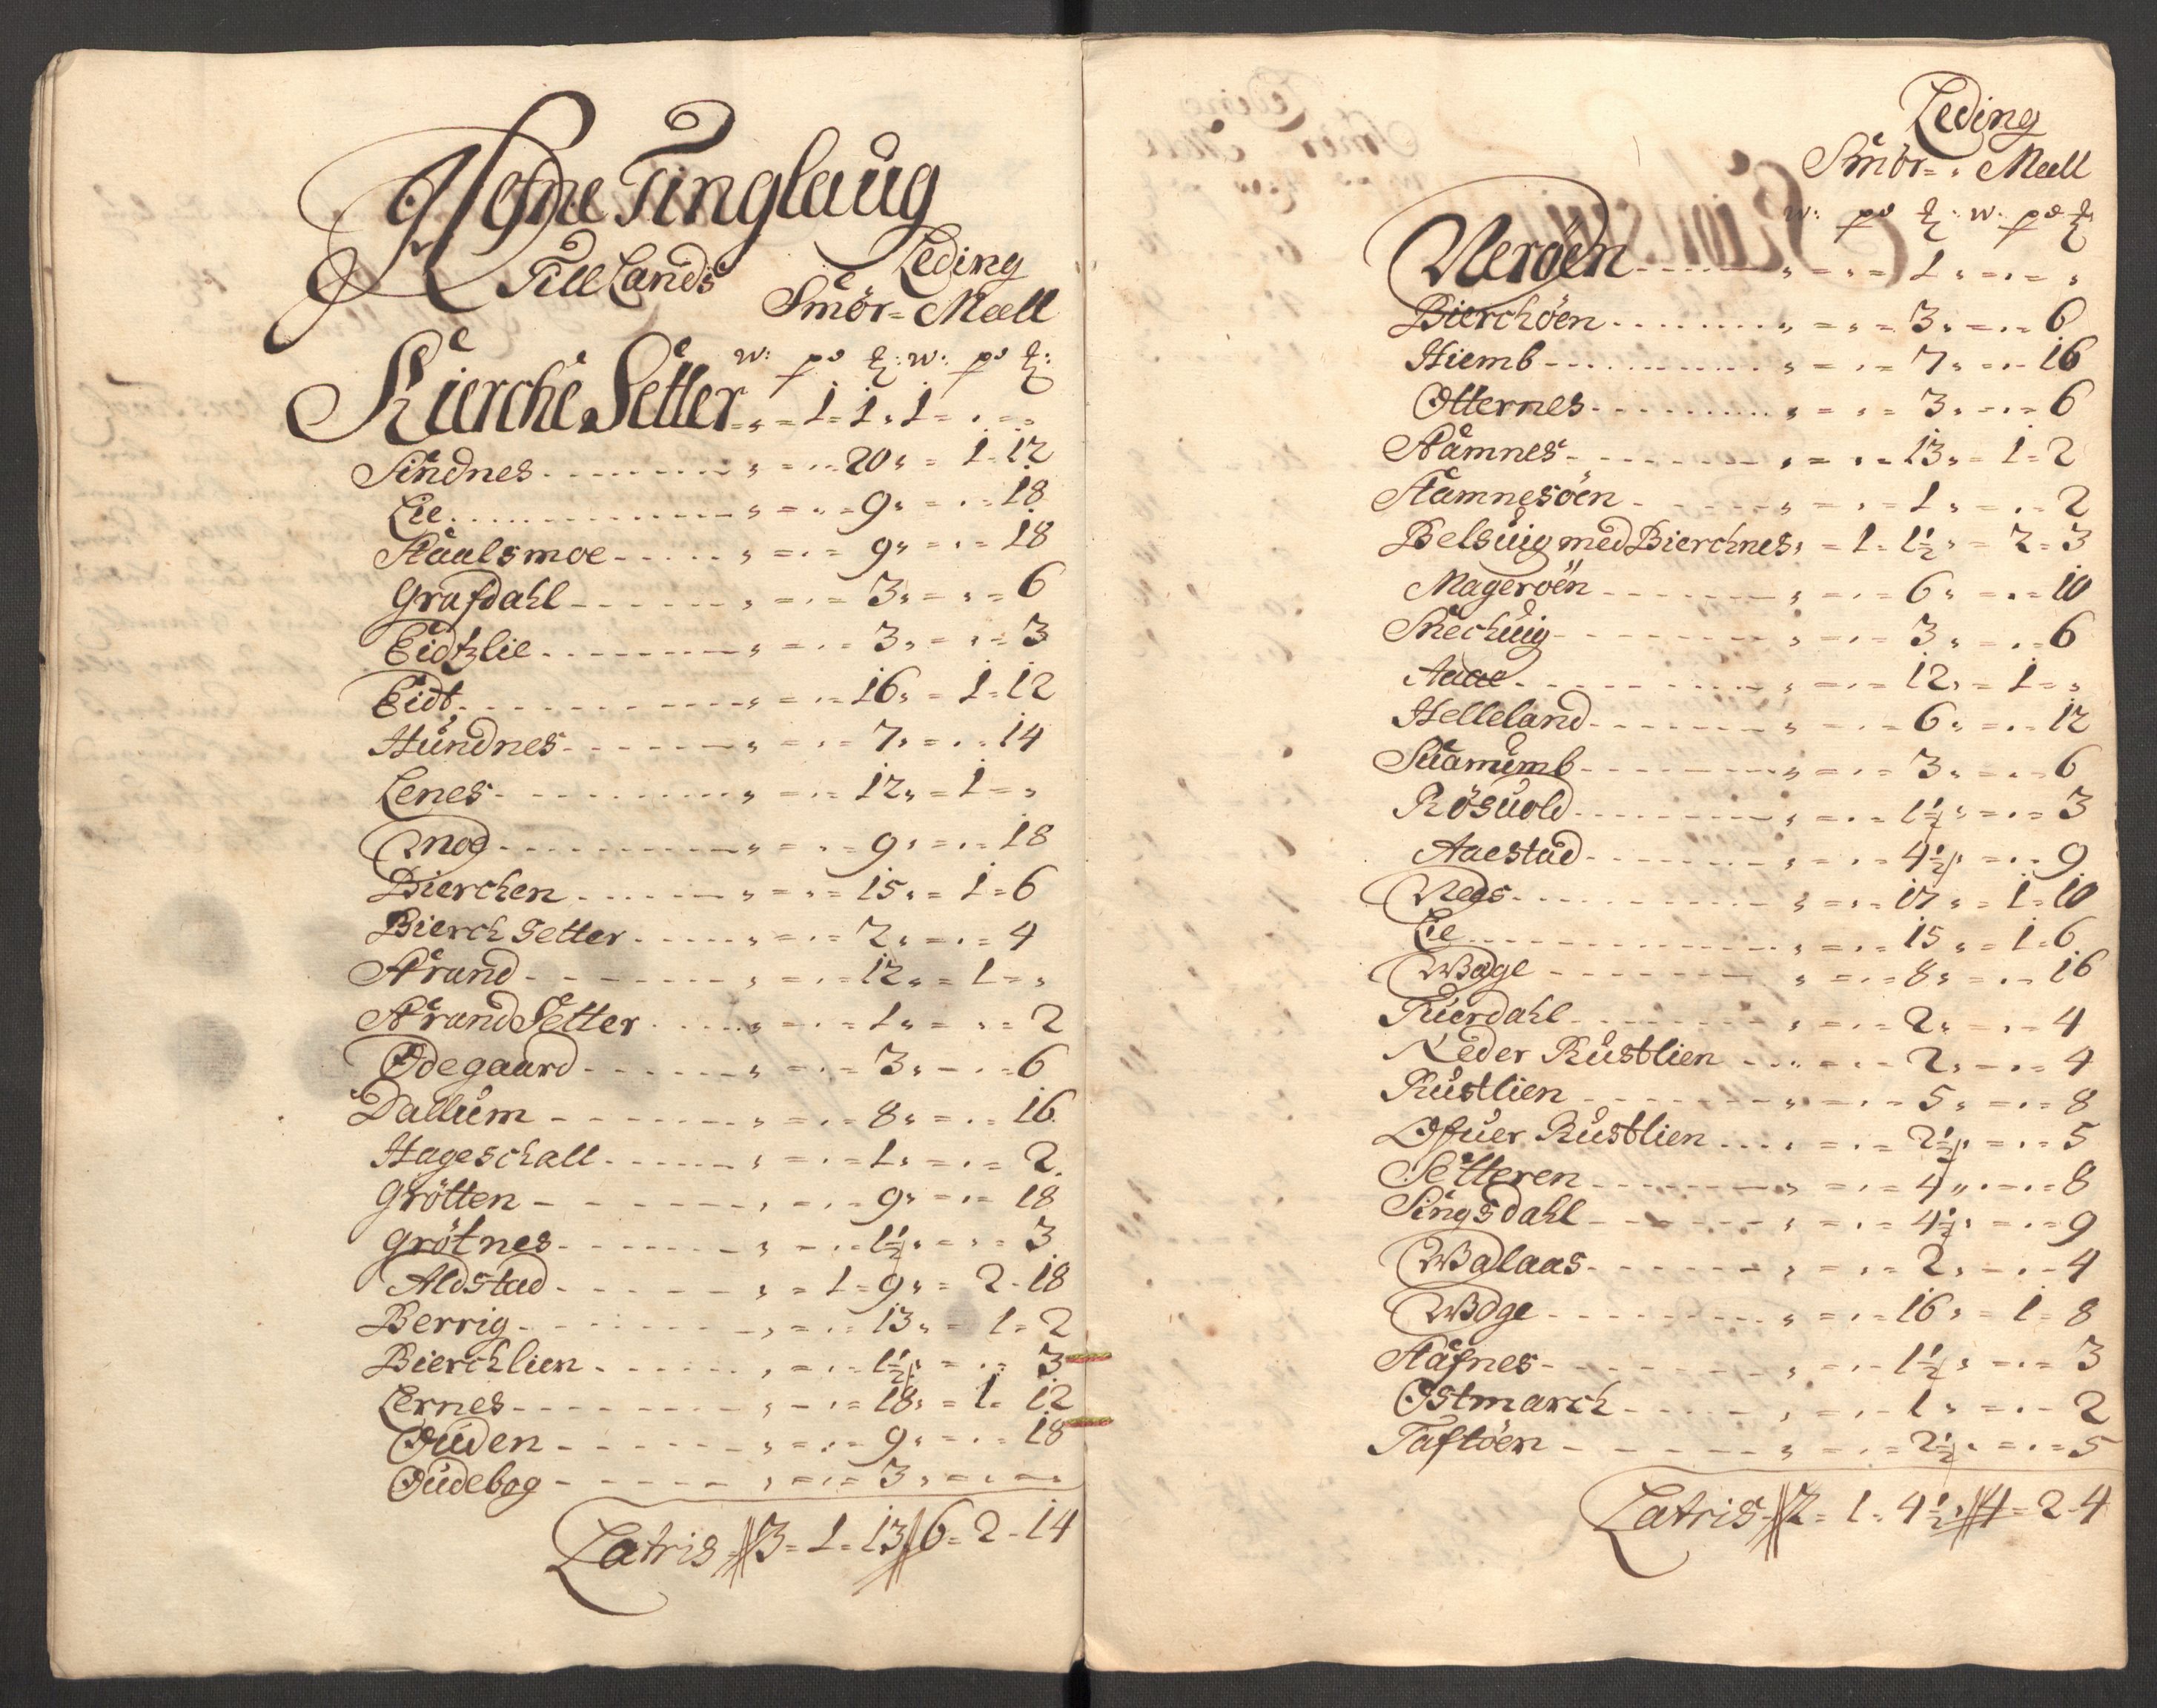 Hefne Tinglaug
Till Lands
Leding
Smör= Meell
w: pd ℔: w: pd ℔:
Kierche Setter „ = 1 = 1 „ 1 = „ = „
Sindnes „ = „ = 20 „ = 1 = 12
Lie „ = „ = 9 „ = „ = 18
Staalsmoe „ = „ = 9 „ = „ = 18
Grafdahl „ = „ = 3 „ = „ = 6
Eidtzlie „ = „ = 3 „ = „ = 3
Eidt „ = „ = 16 „ = 1 = 12
Hundnes „ = „ = 7 „ = „ = 14
Lenes „ = „ = 12 „ = 1 = „
Moe „ = „ = 9 „ = „ = 18
Bierchen „ = „ = 15 „ = 1 = 6
Bierch Setter „ = „ = 2 „ = „ = 4
Strand „ = „ = 12 „ = 1 = „
Strand Setter „ = „ = 1 „ = „ = 2
Ødegaard „ = „ = 3 „ = „ = 6
Dallum „ = „ = 8 „ = „ = 16
Hageschall „ = „ = 1 „ = „ = 2
Grötten „ = „ = 9 „ = „ = 18
Grötnes „ = „ = 1½ „ = „ = 3
Aldstad „ = 1 = 9 „ = 2 = 18
Berrig „ = „ = 13 „ = 1 = 2
Bierchlien „ = „ = 1½ „ = „ = 3
Lernes „ = „ = 18 „ = 1 = 12
Ouden „ = „ = 9 „ = „ = 18
Oudebog „ = „ = 3 „ = „ = „
Latris 3 = 1 = 13 6 = 2 = 14
Leding
Smör= „ Meell
w: pd ℔: w: pd ℔:
Nerøen „ = „ = 1 „ = „ = „
Bierchöen „ = „ = 3 „ = „ = 6
Hiemb „ = „ = 7 „ = „ = 16
Otternes „ = „ = 3 „ = „ = 6
Stamnes „ = „ = 13 „ = 1 = 2
Stamnesöen „ = „ = 1 „ = „ = 2
Belsuig med Bierchnes „ = 1 = 1½ „ = 2 = 3
Mageröen „ = „ = 6 „ = „ = 10
Snechuig „ = „ = 3 „ = „ = 6
Aaae „ = „ = 12 „ = 1 = „
Helleland „ = „ = 6 „ = „ = 12
Suanumb „ = „ = 3 „ = „ = 6
Rösuold „ = „ = 1½ „ = „ = 3
Aaestad „ = „ = 4½ „ = „ = 9
Nees „ = „ = 17 „ = 1 = 10
Lie „ = „ = 15 „ = 1 = 6
Wage „ = „ = 8 „ = „ = 16
Tuerdahl „ = „ = 2 „ = „ = 4
Neder Rustlien „ = „ = 2 „ = „ = 4
Rustlien „ = „ = 5 „ = „ = 8
Ofuer Rustlien „ = „ = 2½ „ = „ = 5
Setteren „ = „ = 4 „ = „ = 8
Singsdahl „ = „ = 4½ „ = „ = 9
Walaas „ = „ = 2 „ = „ = 4
Woge „ = „ = 16 „ = 1 = 8
Stafnes „ = „ = 1½ „ = „ = 3
Ostmarch „ = „ = 1 „ = „ = 2
Taftöen „ = „ = 2½ „ = „ = 5
Latris 2 = 1 = 4½ 4 = 2 = 4